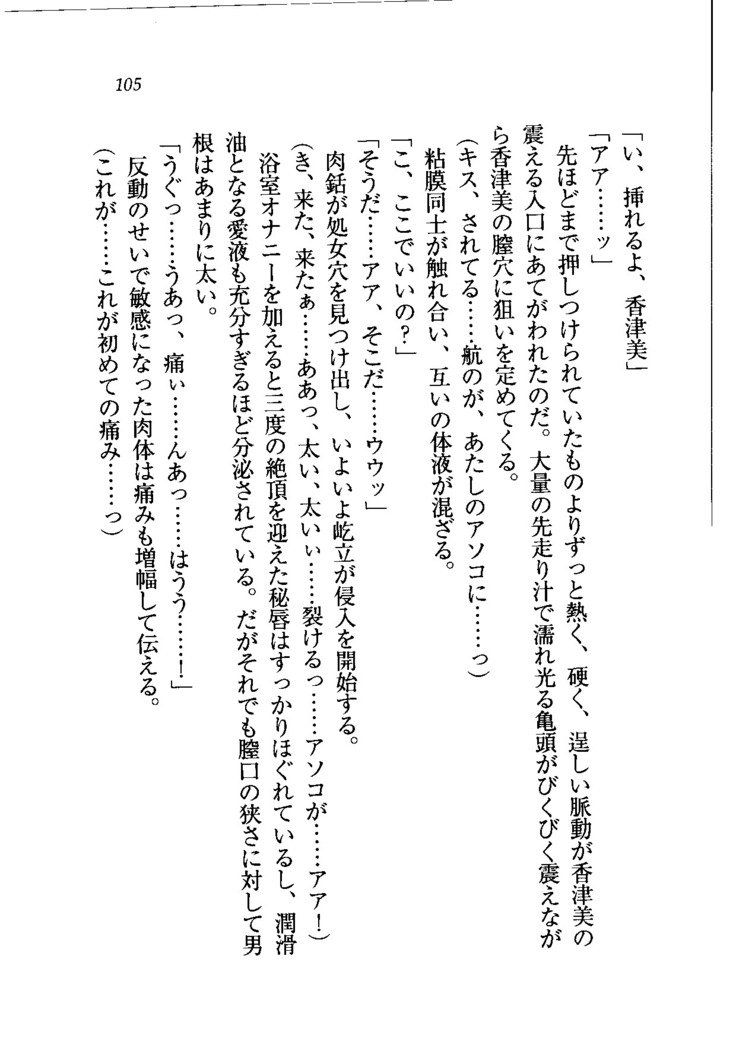 105
「い、挿れるよ、香津美」
「アァ……ッ」
先ほどまで押しつけられていたものよりずっと熱く、硬く、逞しい脈動が香津美の
震える入口にあてがわれたのだ。大量の先走り汁で濡れ光る亀頭がびくびく震えなが
ら香津美の膣穴に狙いを定めてくる。
(キス、されてる……航のが、あたしのアソコに……っ)
粘膜同士が触れ合い、互いの体液が混ざる。
「こ、ここでいいの?」
「そうだ……アァ、そこだ……ウウッ」
肉銛が処女穴を見つけ出し、いよいよ屹立が侵入を開始する。
(き、来た、来たぁ……ああっ、太い、太いぃ……裂けるっ……アソコが……アァ!)
浴室オナニーを加えると三度の絶頂を迎えた秘唇はすっかりほぐれているし、潤滑
油となる愛液も充分すぎるほど分泌されている。だがそれでも膣口の狭さに対して男
根はあまりに太い。
「うぐっ……うあっ、痛ぃ……んあっ……はうう……!」
反動のせいで敏感になった肉体は痛みも増幅して伝える。
(これが……これが初めての痛み……っ)